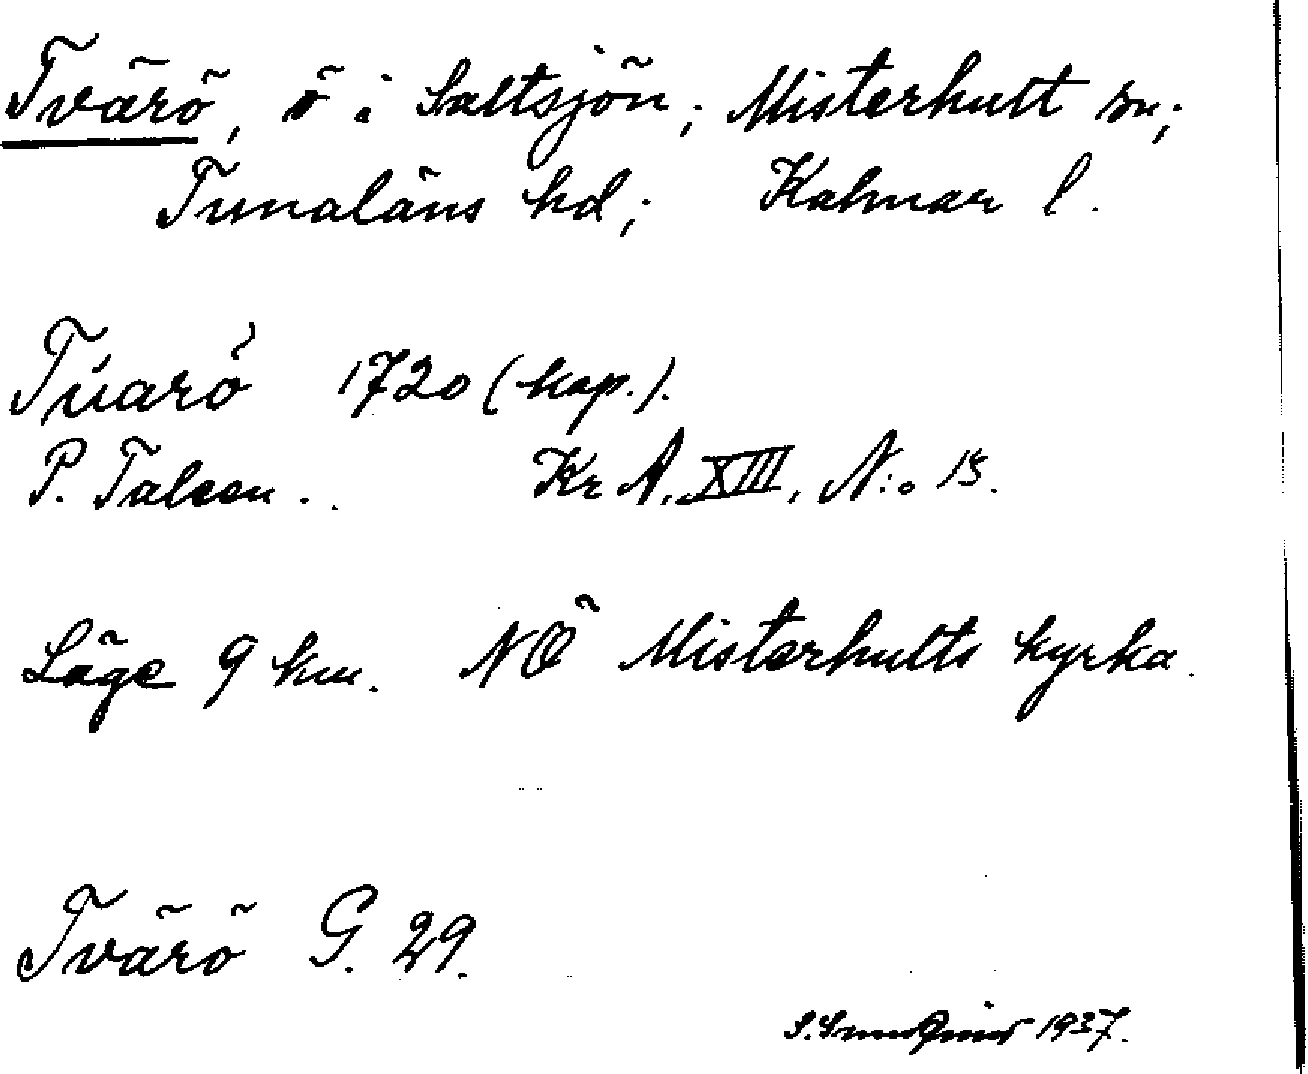 Tvärö, ö i Saltsjön; Misterhult sn;
Tunaläns hd; Kalmar l.
Tuarö 1720 (kop.).
P. Talcen. Kr A. XIII, N:o 15.
Läge 9 km. NÖ Misterhults kyrka.
Tvärö G. 29.
1937.